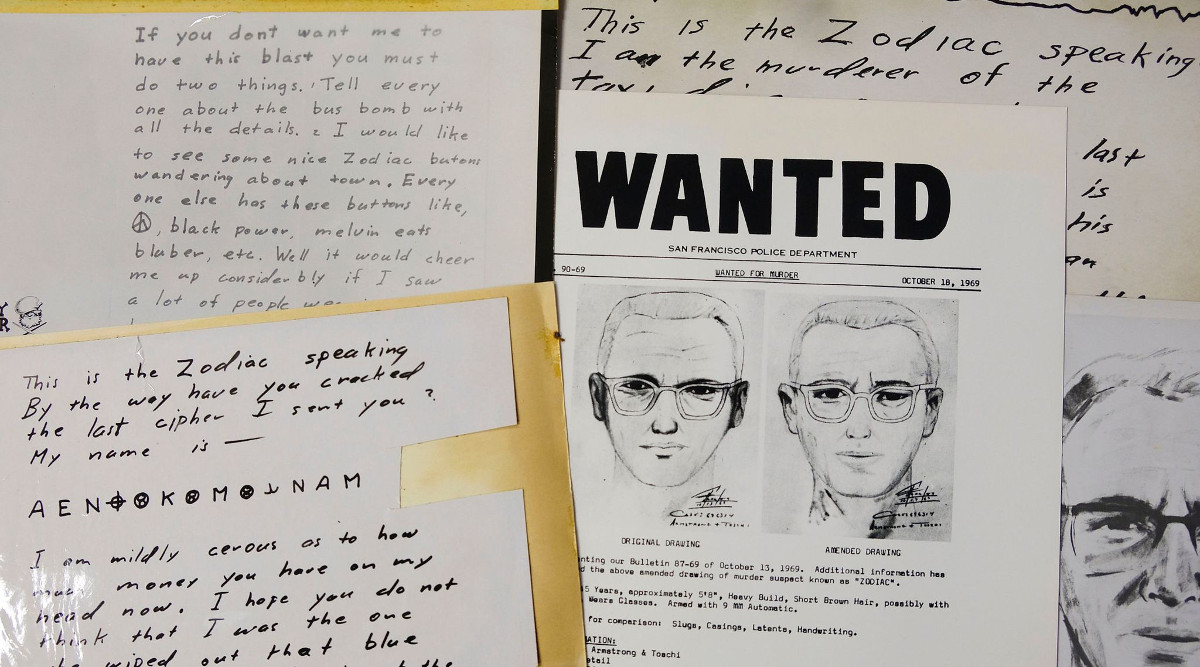 If you dont want me to
have this blast you must
do two things. 1 Tell every
one about the bus bomb with
all the details. 2 I would like
to see some nice Zodiac butons
wandering about town. Every
one else has these buttons like,
☮, black power, melvin eats
bluber, etc. Well it would cheer
me up considerbly if I saw
a lot of people
This is the Zodiac speaking
I am the murderer of the
last
is
his
This is the Zodiac speaking
By the way have you cracked
the last cipher I sent you ?
My name is —
A E N ⌖ ⊗ K ⊗ M ⊗ ⅃ N A M
I am mildly cerous as to how
much money you have on my
head now. I hope you do not
think that I was the one
wiped out that blue
the
WANTED
SAN FRANCISCO POLICE DEPARTMENT
90-69 WANTED FOR MURDER OCTOBER 18, 1969
ORIGINAL DRAWING AMENDED DRAWING
nting our Bulletin 87-69 of October 13, 1969. Additional information has
d the above amended drawing of murder suspect known as "ZODIAC".
5 Years, approximately 5'8", Heavy Build, Short Brown Hair, possibly with
Wears Glasses. Armed with 9 MM Automatic.
for comparison: Slugs, Casings, Latents, Handwriting.
ATION:
Armstrong & Toschi
etail